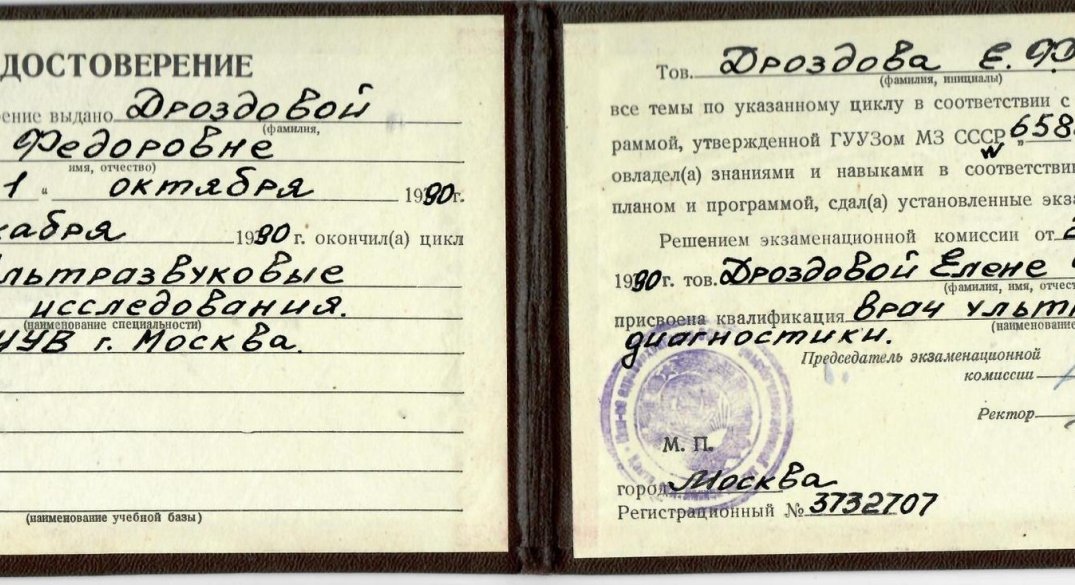 ДОСТОВЕРЕНИЕ
ение выдано Дроздовой
(фамилия,
Федоровне
имя, отчество)
1 " октября 1990г.
кабря 1990 г. окончил(а) цикл
льтразвуковые
исследования.
(наименование специальности)
УУВ г. Москва.
(наименование учебной базы)
Тов. Дроздова Е. Ф
(фамилия, инициалы)
все темы по указанному циклу в соответствии с
раммой, утвержденной ГУУЗом МЗ СССР „658
овладел(а) знаниями и навыками в соответствии
планом и программой, сдал(а) установленные экза
Решением экзаменационной комиссии от 2
1990г. тов. Дроздовой Елене
(фамилия, имя, отчест
присвоена квалификация врач ульт
(наименование
диагностики.
Председатель экзаменационной
комиссии
Ректор
М. П.
город Москва
Регистрационный № 3732707